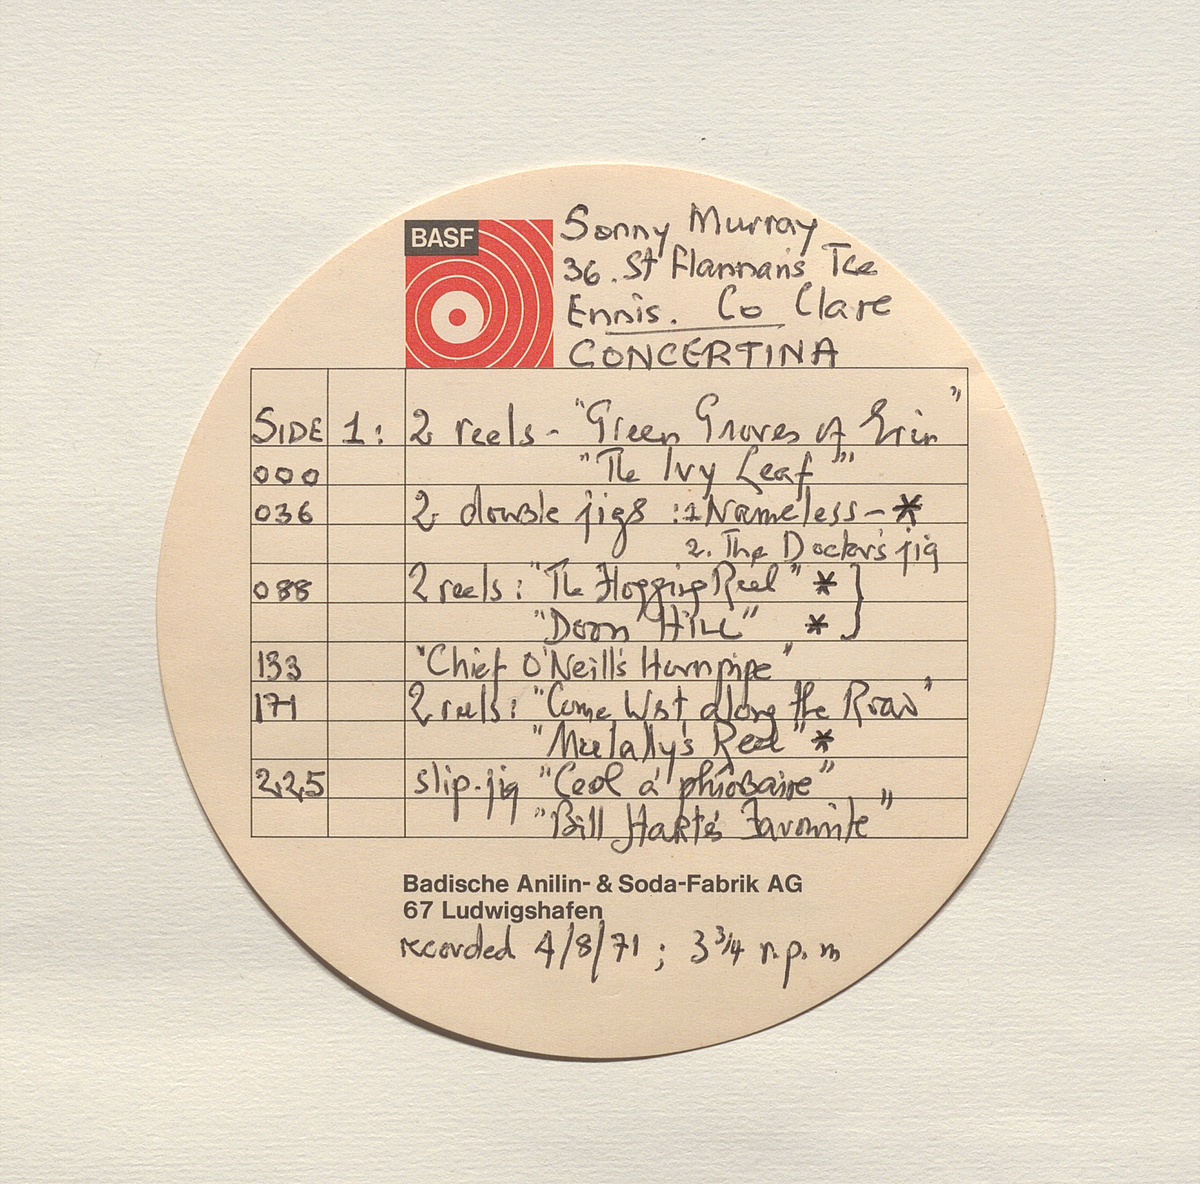 BASF
Sonny Murray
36. St Flannan's Tce
Ennis. Co Clare
CONCERTINA
SIDE 1: 2 reels - "Green Groves of Erin"
000 "The Ivy Leaf"
036 2 double jigs: 1 Nameless - *
2. The Doctor's jig
088 2 reels: "The Flogging Reel" * }
"Doon Hill" *
133 "Chief O'Neill's Hornpipe"
171 2 reels: "Come West along the Road"
"Mulally's Reel" *
225 slip-jig "Ceol a' phíobaire"
"Bill Harte's Favourite"
Badische Anilin- & Soda-Fabrik AG
67 Ludwigshafen
recorded 4/8/71; 3 3/4 r.p.m